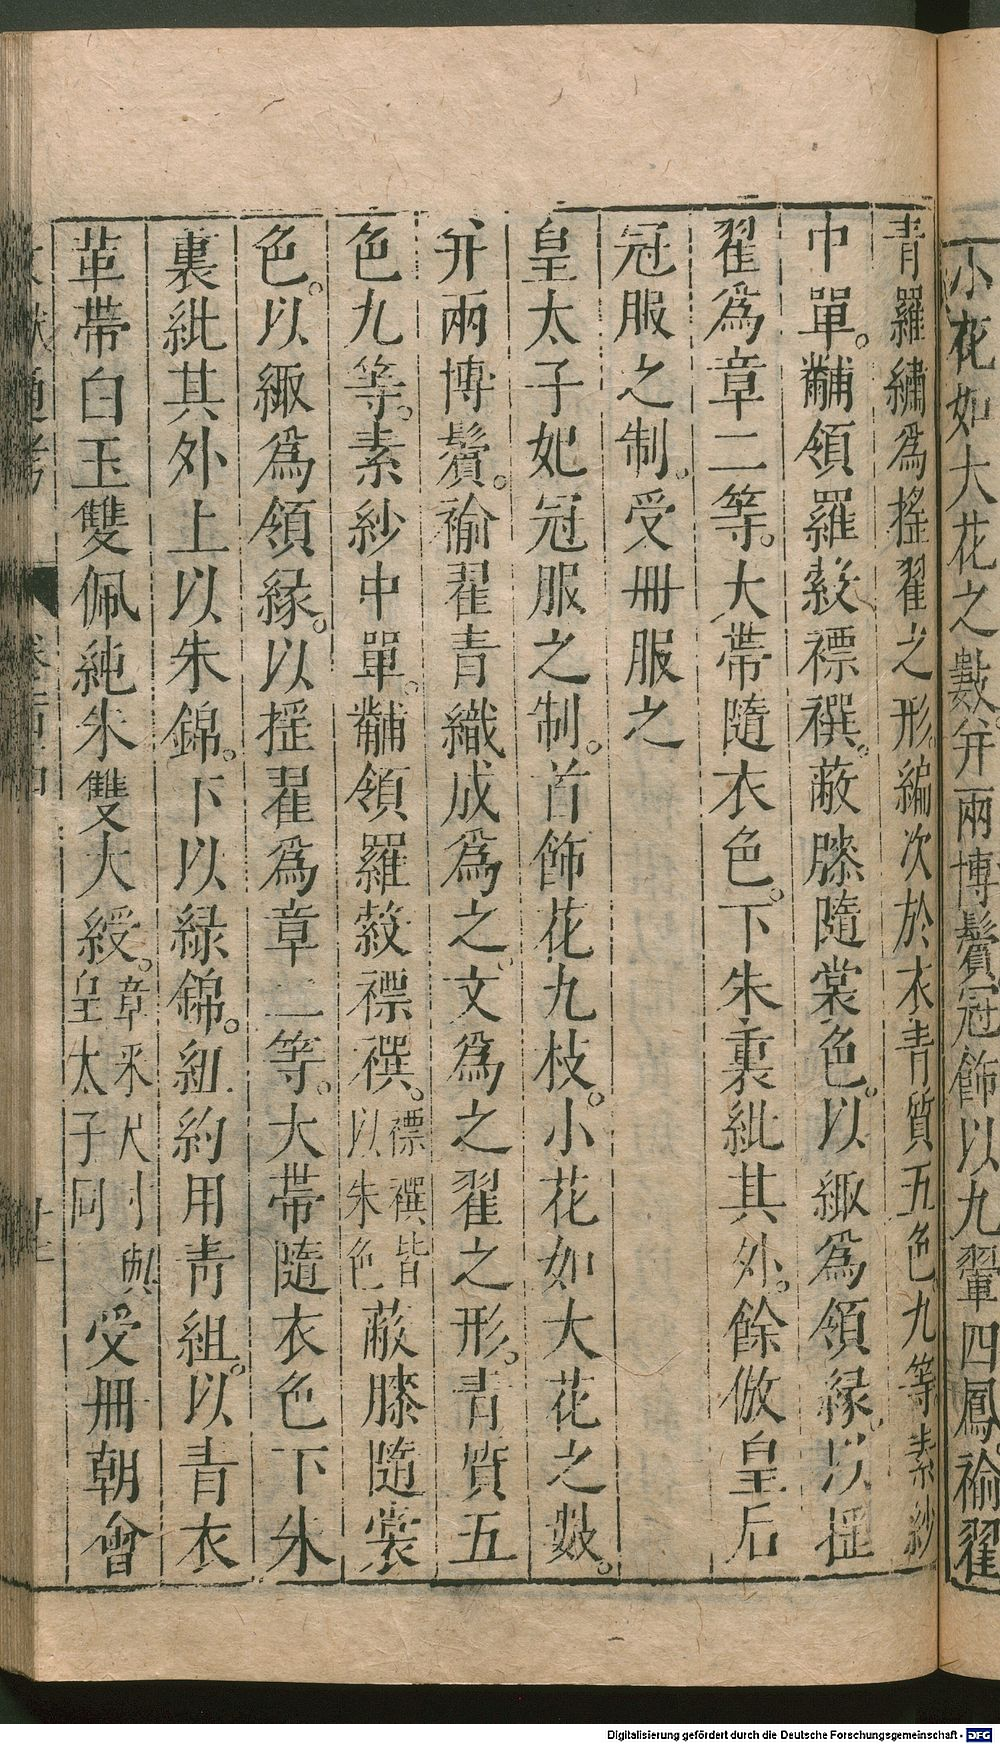 小花如大花之數并兩博鬢冠飾以九翬四鳳褕翟
青羅繡爲搖翟之形編次於衣青質五色九等素紗
中單。黼領羅縠褾襈。蔽膝隨裳色。以緅爲領緣。以揺
翟爲章二等。大帶隨衣色。下朱裏紕其外。餘倣皇后
冠服之制。受冊服之
皇太子妃冠服之制。首飾花九枝。小花如大花之數。
并兩博鬢。褕翟青織成爲之。文爲之翟之形。青質五
色九等。素紗中單。黼領羅縠褾襈。褾襈皆以朱色蔽膝隨裳
色。以緅爲領緣。以揺翟爲章二等。大帶隨衣色下朱
裏紕其外上以朱錦。下以緑錦。紐約用青組。以青衣
革帶白玉雙佩純朱雙大綬。章采尺寸與皇太子同受冊朝會
文獻通考
Digitalisierung gefördert durch die Deutsche Forschungsgemeinschaft - DFG